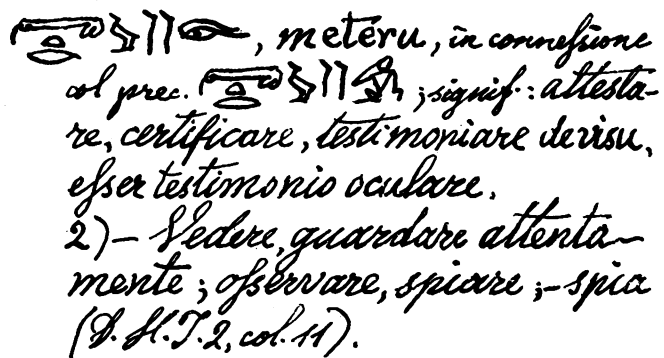 , meteru, in conneſsione
col prec. ; signif.: attesta-
re, certificare, testimoniare de visu,
eſser testimonio oculare.
2) – Vedere, guardare attenta-
mente; oſservare, spiare; – spia
(D. H. I. 2, col. 11).